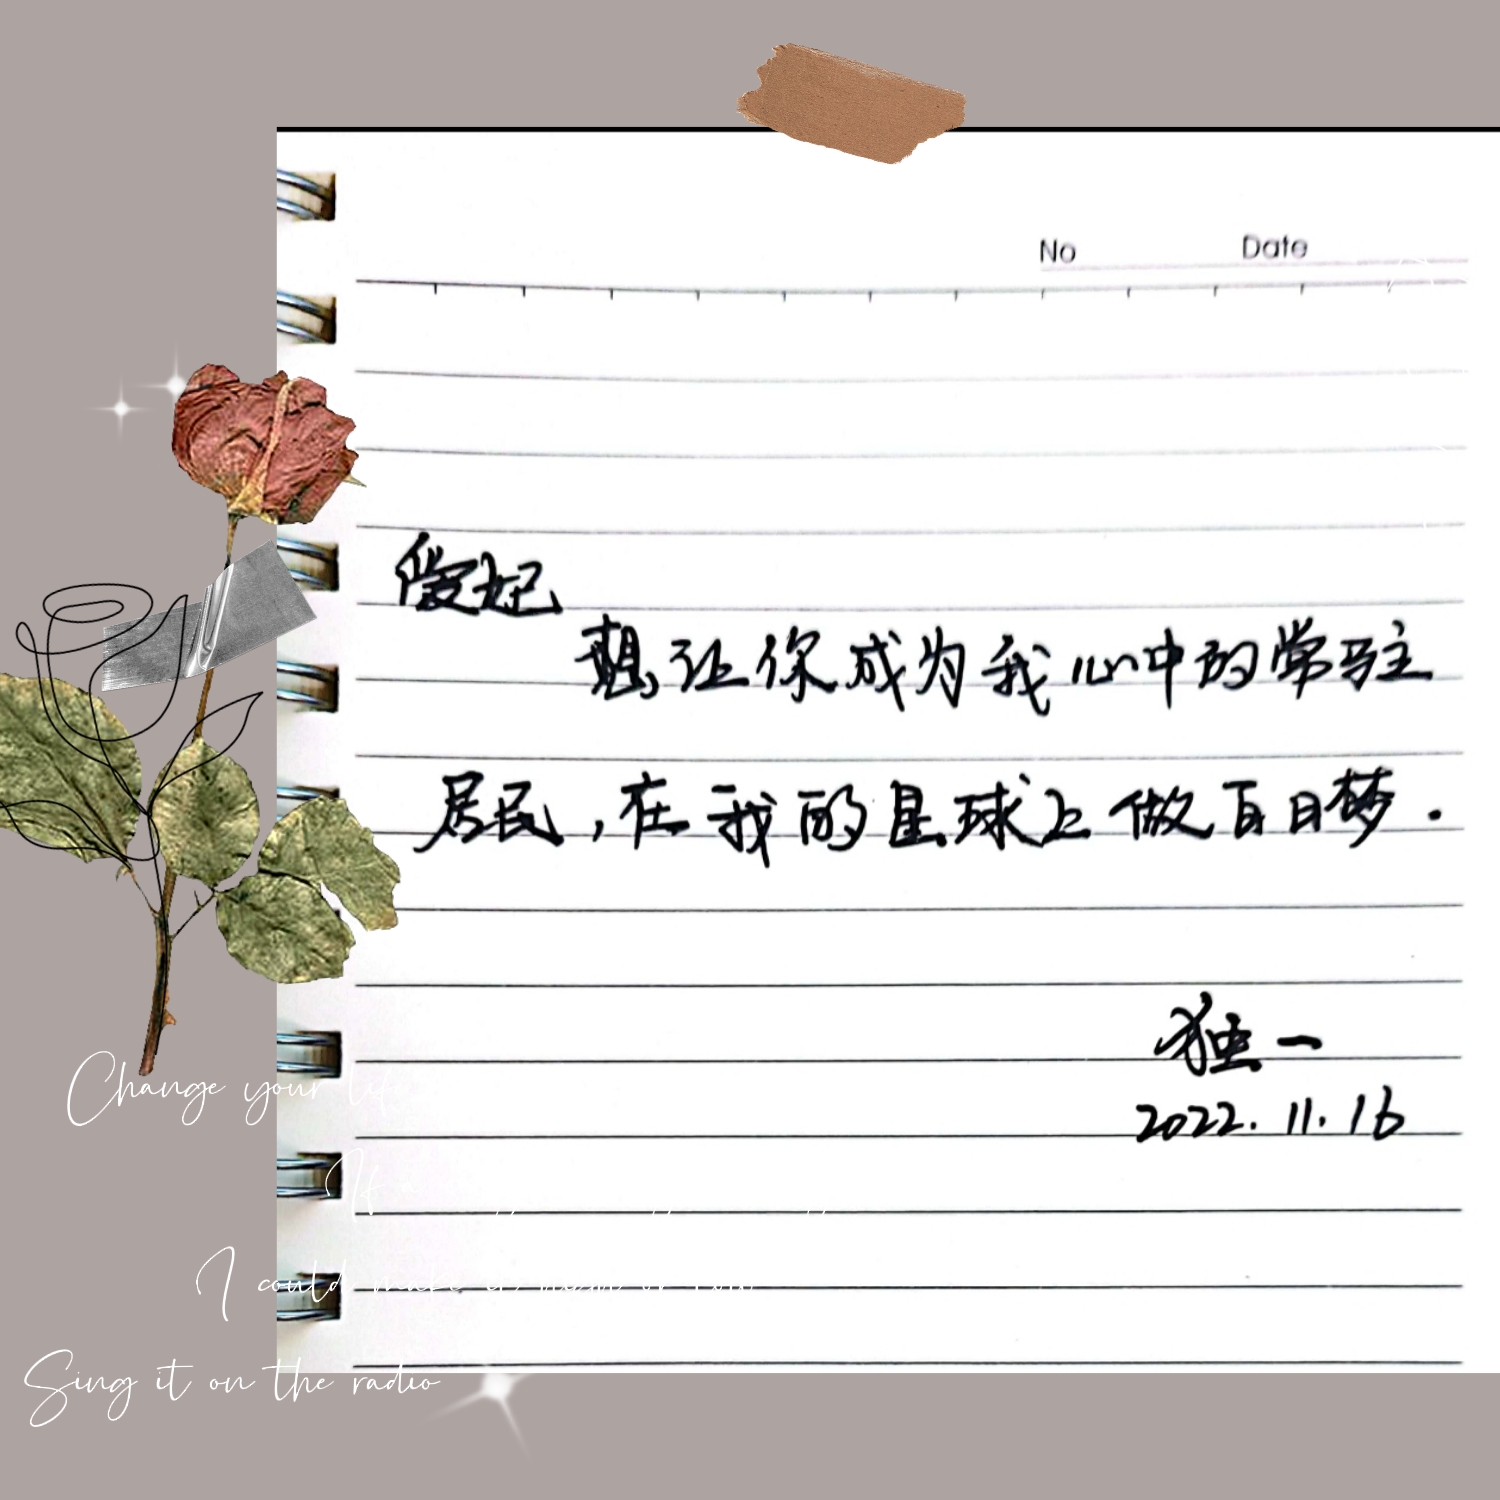 No Date
爱妃
想让你成为我心中的常驻
居民，在我的星球上做白日梦.
独一
2022.11.16
Change your life
If
I could make it
Sing it on the radio